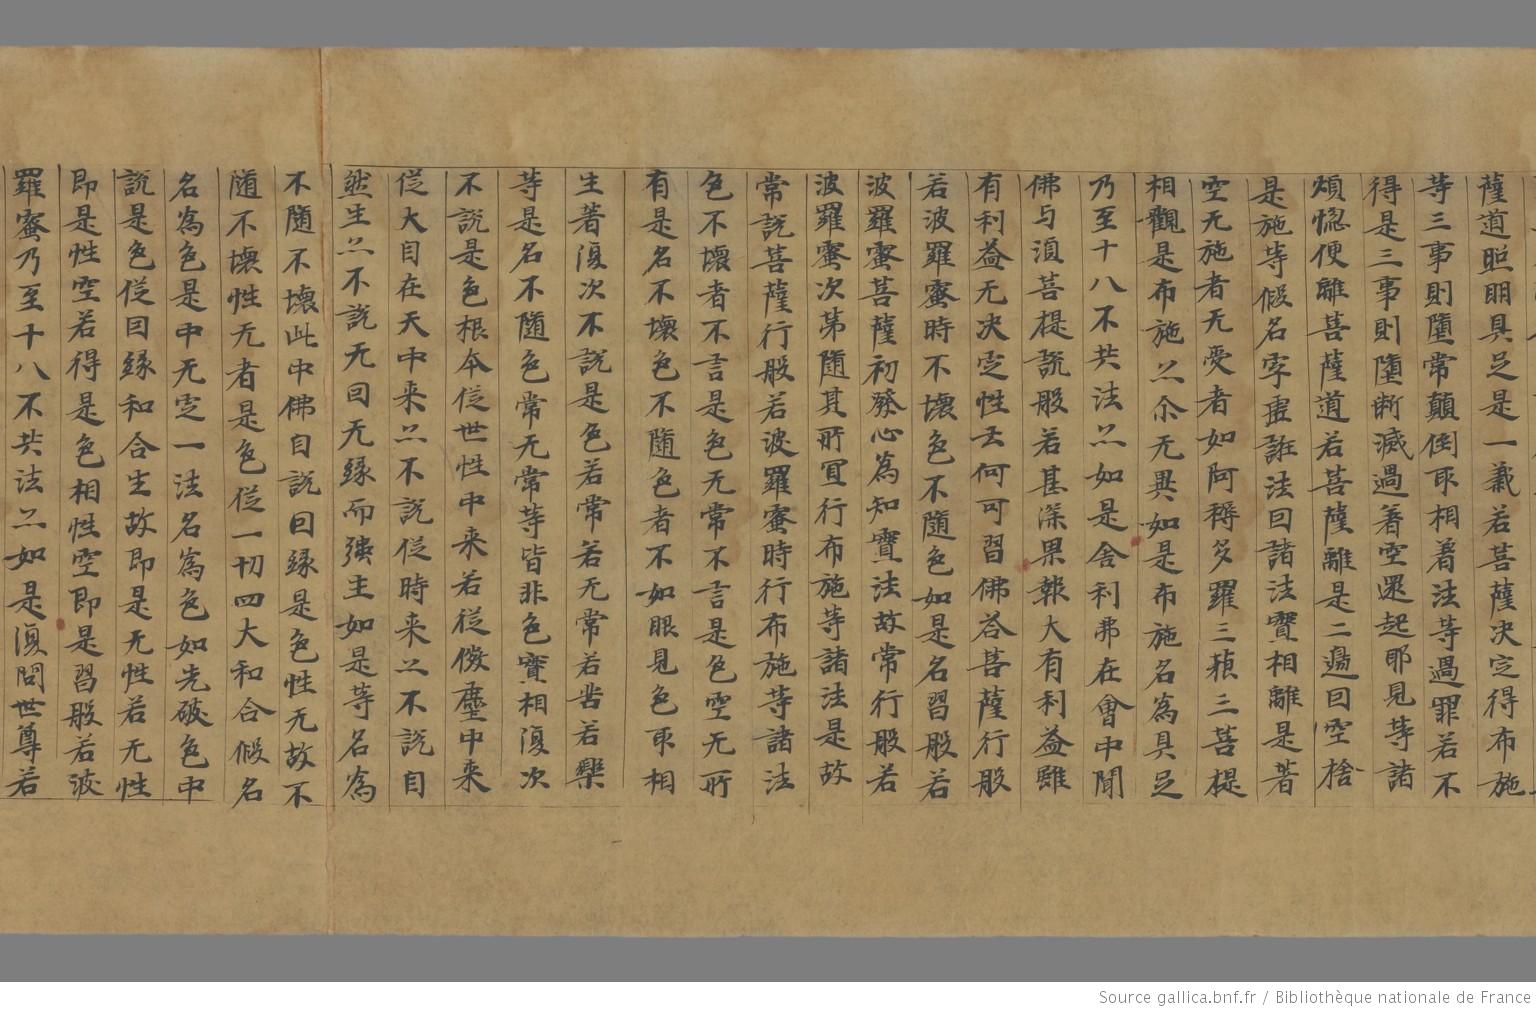 薩道照明具足是一義若菩薩决定得布施
等三事則墮常顛倒取相著法等過罪若不
得是三事則墮断滅過著空還起耶見等諸
煩惱便離菩薩道若菩薩離是二邊回空捨
是施等假名字虛誑法回諸法實相離是著
空无施者无受者如阿耨多羅三藐三菩提
相觀是布施亦尒无異如是布施名為具足
乃至十八不共法亦如是舍利弗在會中聞
佛与湏菩提說般若甚深果報大有利益雖
有利益无决定性云何可習佛荅菩薩行般
若波羅蜜時不壞色不隨色如是名習般若
波羅蜜菩薩初發心為知實法故常行般若
波羅蜜次第隨其所冝行布施等諸法是故
常說菩薩行般若波羅蜜時行布施等諸法
色不壞者不言是色无常不言是色空无所
有是名不壞色不隨色者不如眼見色取相
生著復次不說是色若常若无常若苦若樂
等是名不隨色常无常等皆非色實相復次
不說是色根本從世性中来若從微塵中来
從大自在天中来亦不說從時来亦不說自
然生亦不說无回无緣而強生如是等名為
不隨不壞此中佛自說回緣是色性无故不
隨不壞性无者是色從一切四大和合假名
名為色是中无定一法名為色如先破色中
說是色從回緣和合生故即是无性若无性
即是性空若得是色相性空即是習般若波
羅蜜乃至十八不共法亦如是復問世尊若
Source gallica.bnf.fr / Bibliothèque nationale de France